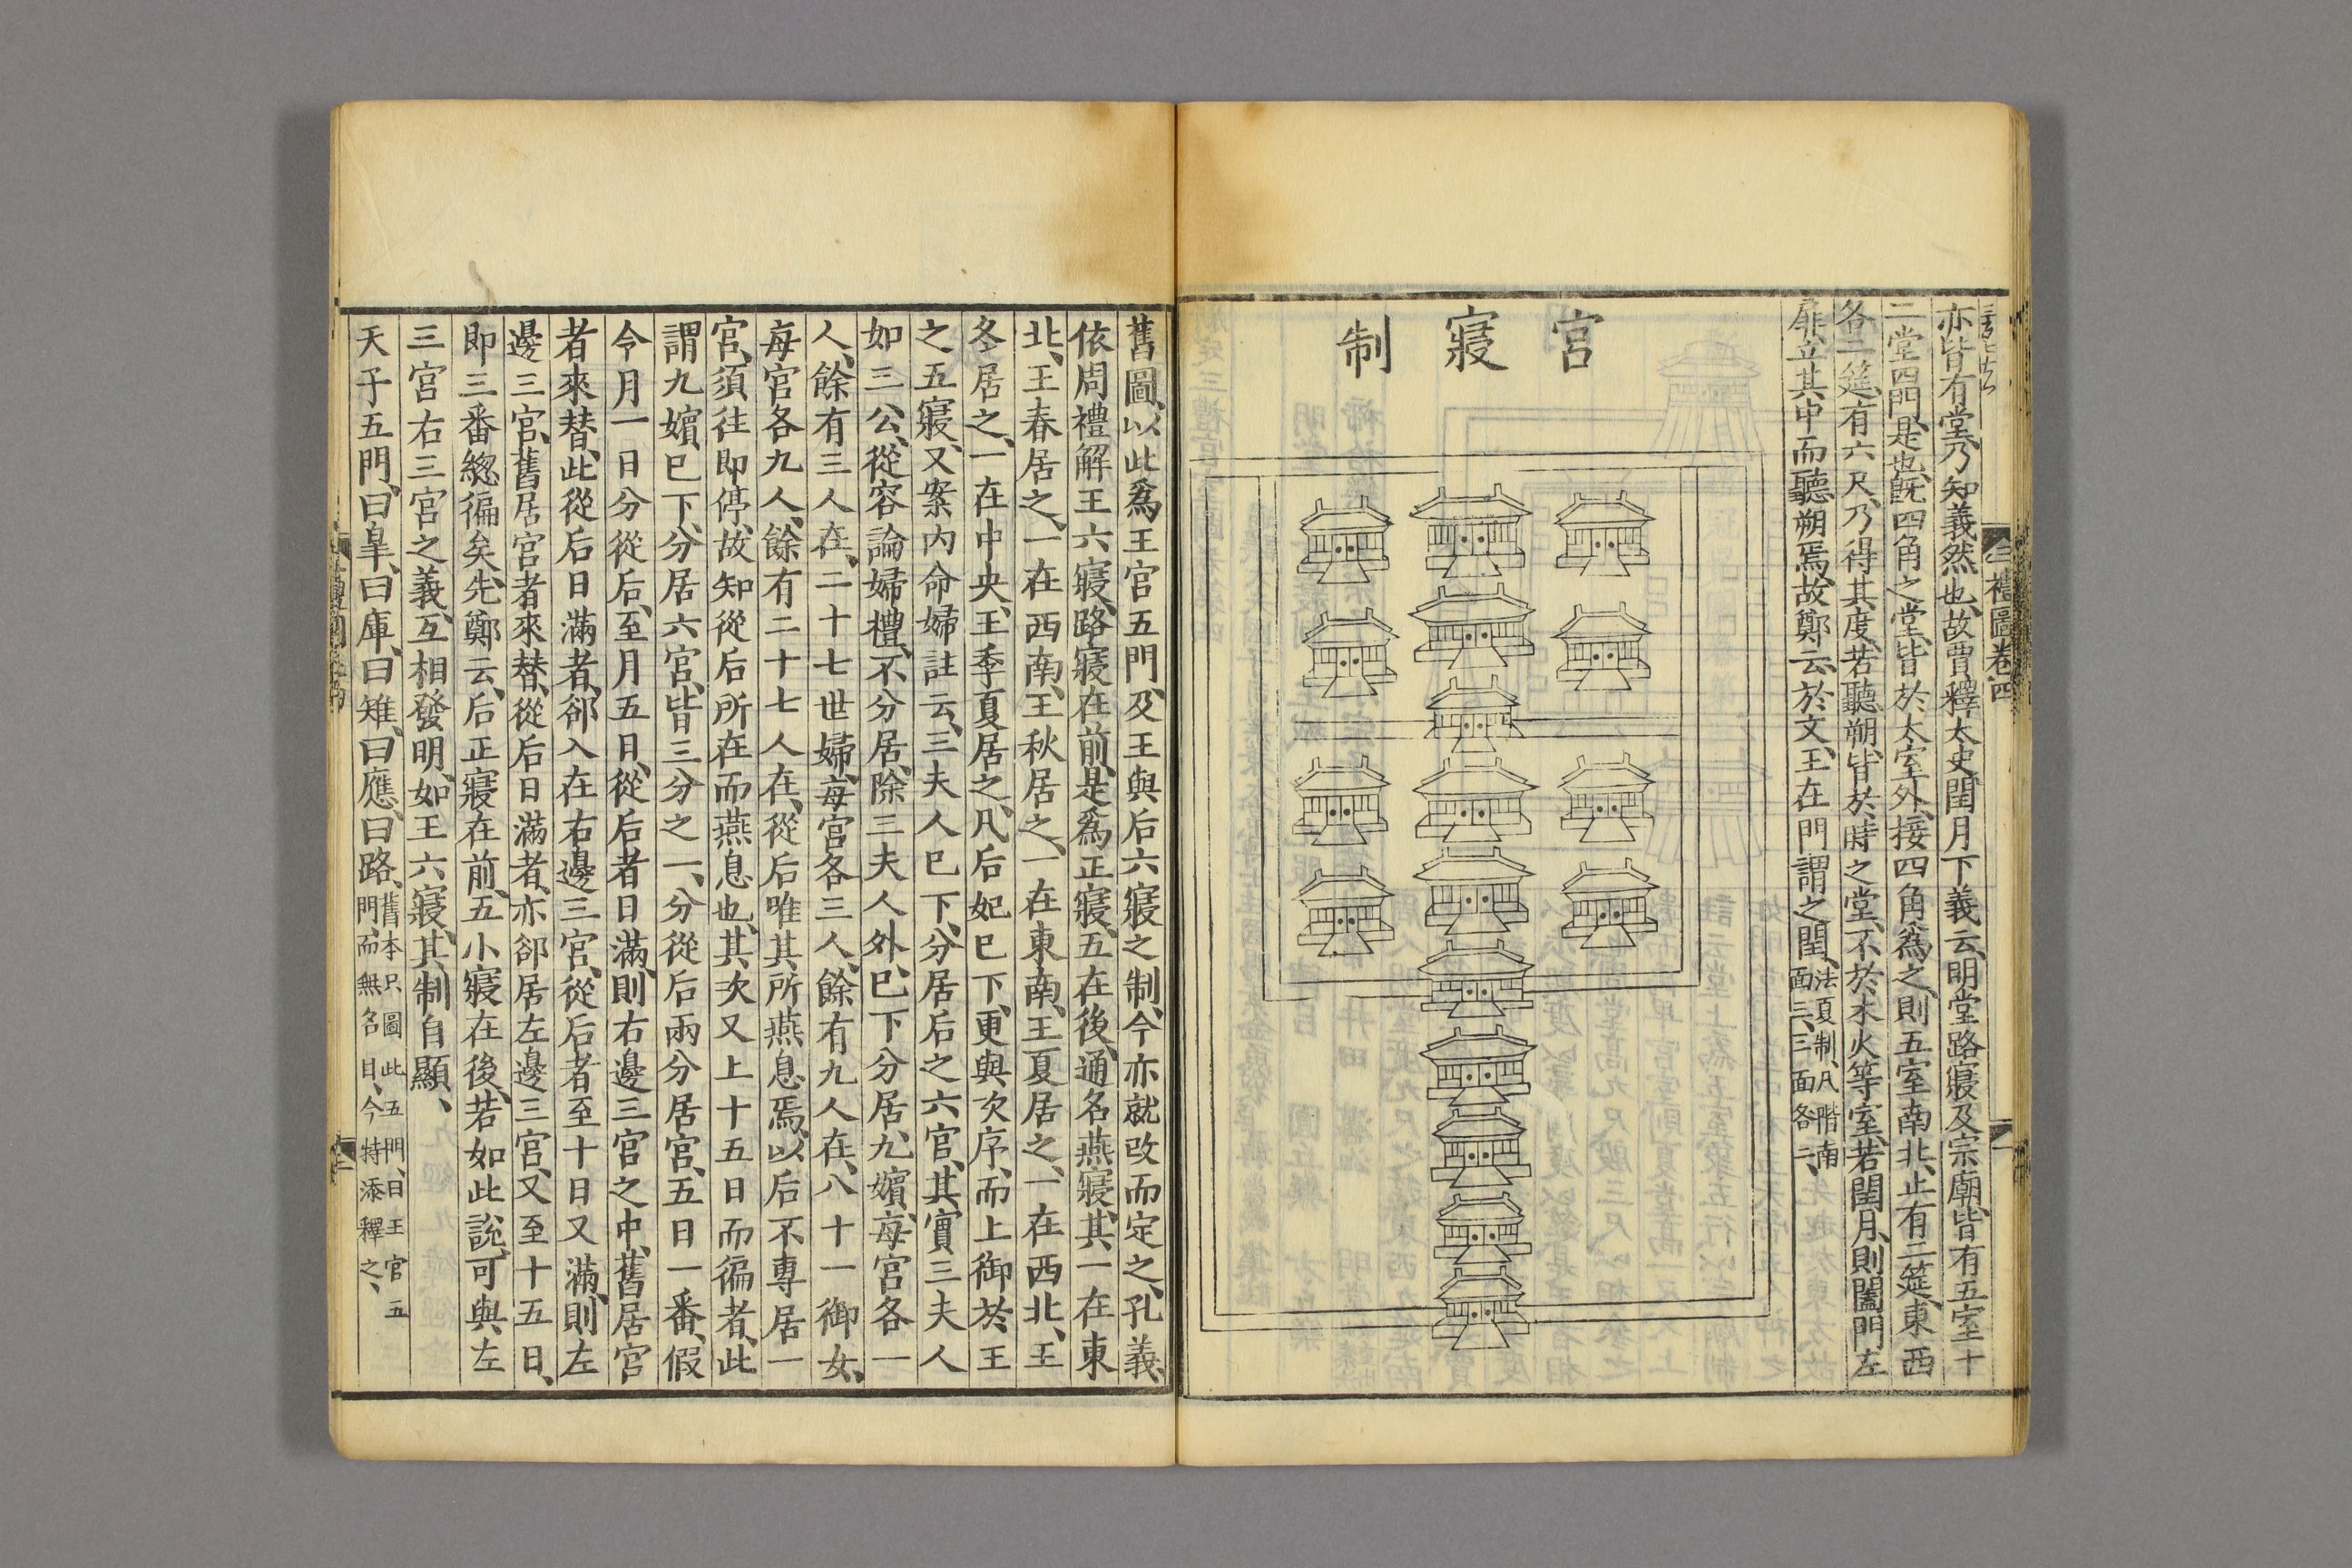 三禮圖卷四
亦皆有堂乃知義然也故賈釋太史閏月下義云明堂路寢及宗廟皆有五室十
二堂四門是也旣四角之堂皆於太室外接四角爲之則五室南北止有二筵東西
各二筵有六尺乃得其度若聽朔皆於時之堂不於木火等室若閏月則闔門左
扉立其中而聽朔焉故鄭云於文王在門謂之閏法夏制凡階南
面三三面各二
宮寢制
舊圖以此爲王宮五門及王與后六寢之制今亦就改而定之孔義
依周禮解王六寢路寢在前是爲正寢五在後通名燕寢其一在東
北王春居之一在西南王秋居之一在東南王夏居之一在西北王
冬居之一在中央王季夏居之凡后妃已下更與次序而上御於王
之五寢又案內命婦註云三夫人已下分居后之六宮其實三夫人
如三公從容論婦禮不分居除三夫人外已下分居九嬪每宮各一
人餘有三人在二十七世婦每宮各三人餘有九人在八十一御女
每宮各九人餘有二十七人在從后唯其所燕息焉以后不專居一
宮須往即停故知從后所在而燕息也其次又上十五日而徧者此
謂九嬪已下分居六宮皆三分之一分從后兩分居宮五日一番假
令月一日分從后至月五日從后者日滿則右邊三宮之中舊居宮
者來替此從后日滿者郤入在右邊三宮從后者至十日又滿則左
邊三宮舊居宮者來替從后日滿者亦郤居左邊三宮又至十五日
即三番緫徧矣先鄭云后正寢在前五小寢在後若如此說可與左
三宮右三宮之義互相發明如王六寢其制自顯
天子五門曰臯曰庫曰雉曰應曰路舊本只圖此五門曰王宮五
門而無名目今特添釋之